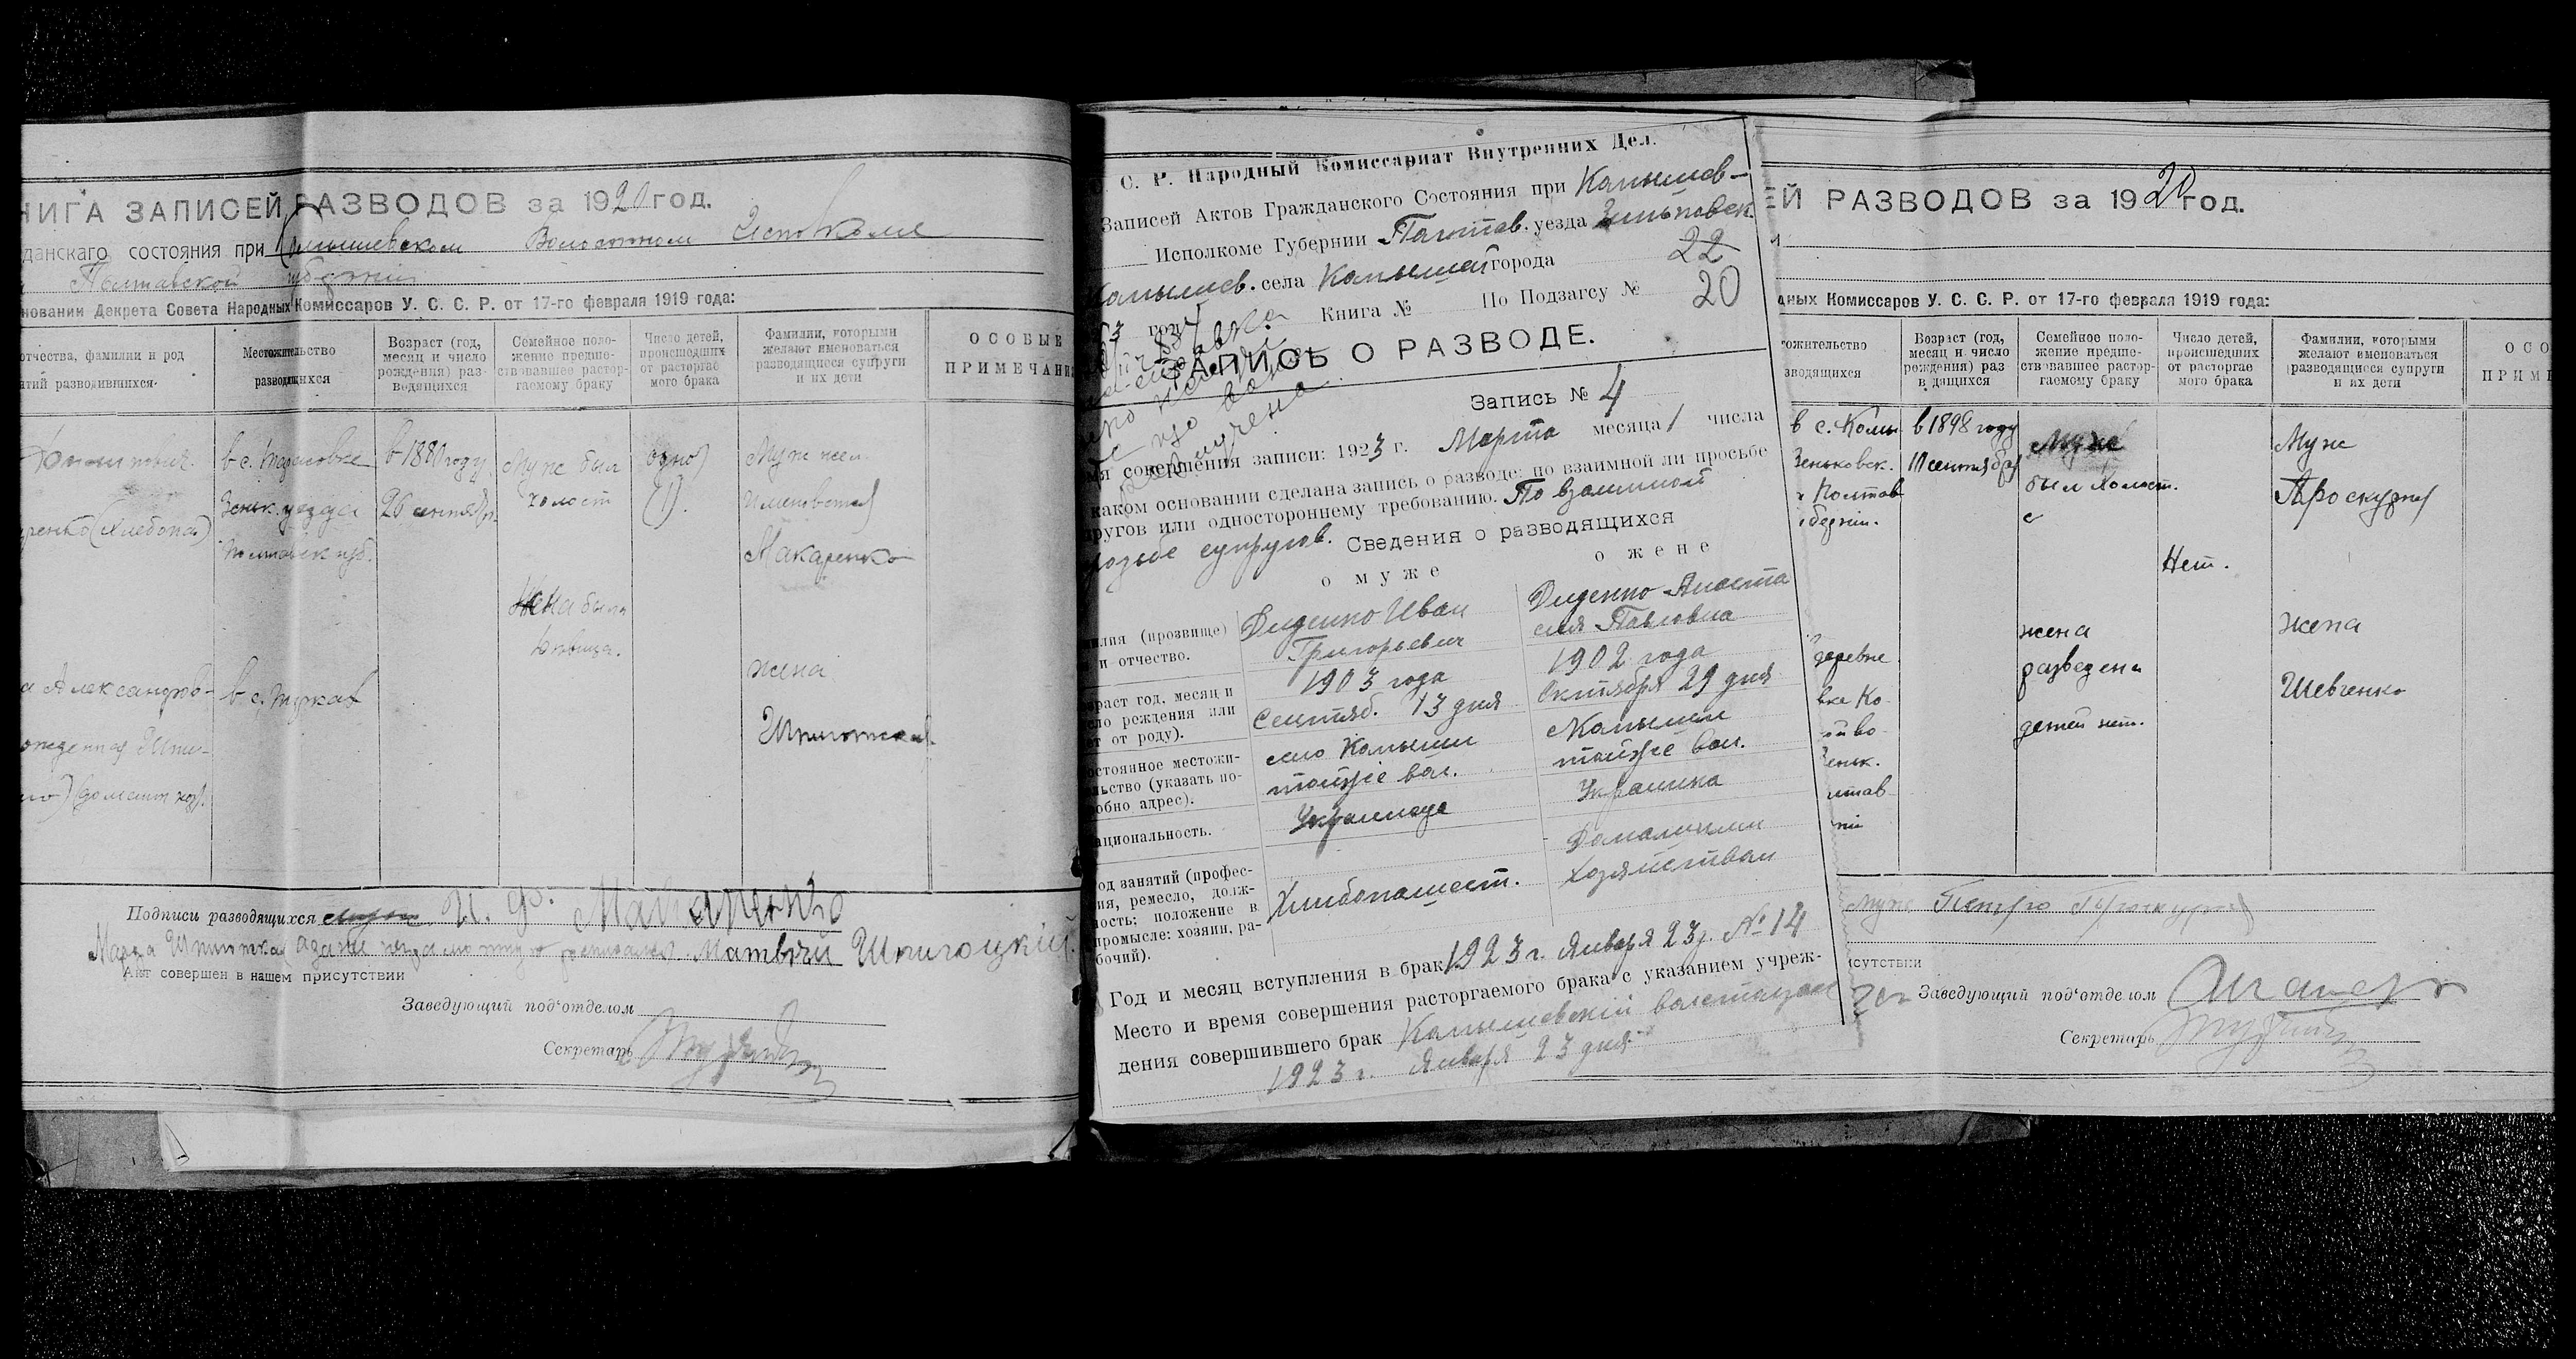 НИГА ЗАПИСЕЙ РАЗВОДОВ за 1920 год.
данскаго состояния при Комышевском Волостном Исполкоме
Полтавской губернии
новании Декрета Совета Народных Комиссаров У. С. С. Р. от 17-го февраля 1919 года:
отчества, фамилии и род
ятий разводившихся.
Местожительство
разводящихся
Возраст (год,
месяц и число
рождения) раз-
водящихся
Семейное поло-
жение предше-
ствовавшее растор-
гаемому браку
Число детей,
происшедших
от расторгае
мого брака
Фамилии, которыми
желают именоваться
разводящиеся супруги
и их дети
ОСОБЫЕ
ПРИМЕЧАНИ
уренко (хлебопаш)
а Александров-
в с.
Зеньк. уезда
Полтавск губ.
в с.
в 1880 году
26 сентября
Муж был
холост
Жена была
девица.
одно
(1).
Муж жел.
именоваться
Макаренко
жена
Подписи разводящихся
Макаренко
Матвей Шпигоцкий.
Акт совершен в нашем присутствии
Заведующий под'отделом
Секретарь
С. Р. Народный Комиссариат Внутренних Дел.
Записей Актов Гражданского Состояния при Комышев-
Исполкоме Губернии Полтав. уезда Зиньковск.
Комышев. села Комышей города 22
год Книга № По Подзагсу № 20
ЗАПИСЬ О РАЗВОДЕ.
Запись № 4
мя совершения записи: 1923 г. Марта месяца 1 числа
каком основании сделана запись о разводе: по взаимной ли просьбе
пругов или одностороннему требованию. По взаимной
прозьбе супругов.
Сведения о разводящихся
о муже
о жене
илия (прозвище)
и отчество.
Диденко Иван
Григорьевич
Диденко Анаста
сия Павловна
зраст год, месяц и
ло рождения или
ет от роду).
1903 года
Сентяб. 13 дня
1902 года
Октября 29 дня
остоянное местожи-
льство (указать по-
робно адрес).
село Комыши
тойже вол.
Комыши
тойже вол.
ациональность.
Украинец
Украинка
од занятий (профес-
ия, ремесло, долж-
ность; положение в
промысле: хозяин, ра-
бочий).
Хлебопашест.
Домашним
хозяйством
Год и месяц вступления в брак 1923 г. Января 23 д. № 14
Место и время совершения расторгаемого брака с указанием учреж-
дения совершившего брак Комышевский
1923 г. Января 23 дня
ЕЙ РАЗВОДОВ за 1920 год.
дных Комиссаров У. С. С. Р. от 17-го февраля 1919 года:
тожительство
зводящихся
Возраст (год,
месяц и число
рождения) раз
в дящихся
Семейное поло-
жение предше-
ствовавшее растор-
гаемому браку
Число детей,
происшедших
от расторгае
мого брака
Фамилии, которыми
желают именоваться
разводящиеся супруги
и их дети
ОСО
ПРИМ
в с. Комы
Зеньковск.
Полтав
деревне
вке Ко-
Зеньк.
лтав
в 1898 году
11 сентября
Муж
был холост.
жена
разведена
детей нет.
Нет.
Муж
Проскурня
Жена
Шевченко
муж Петро Проскурня
сутствии
Заведующий под'отделом
Секретарь